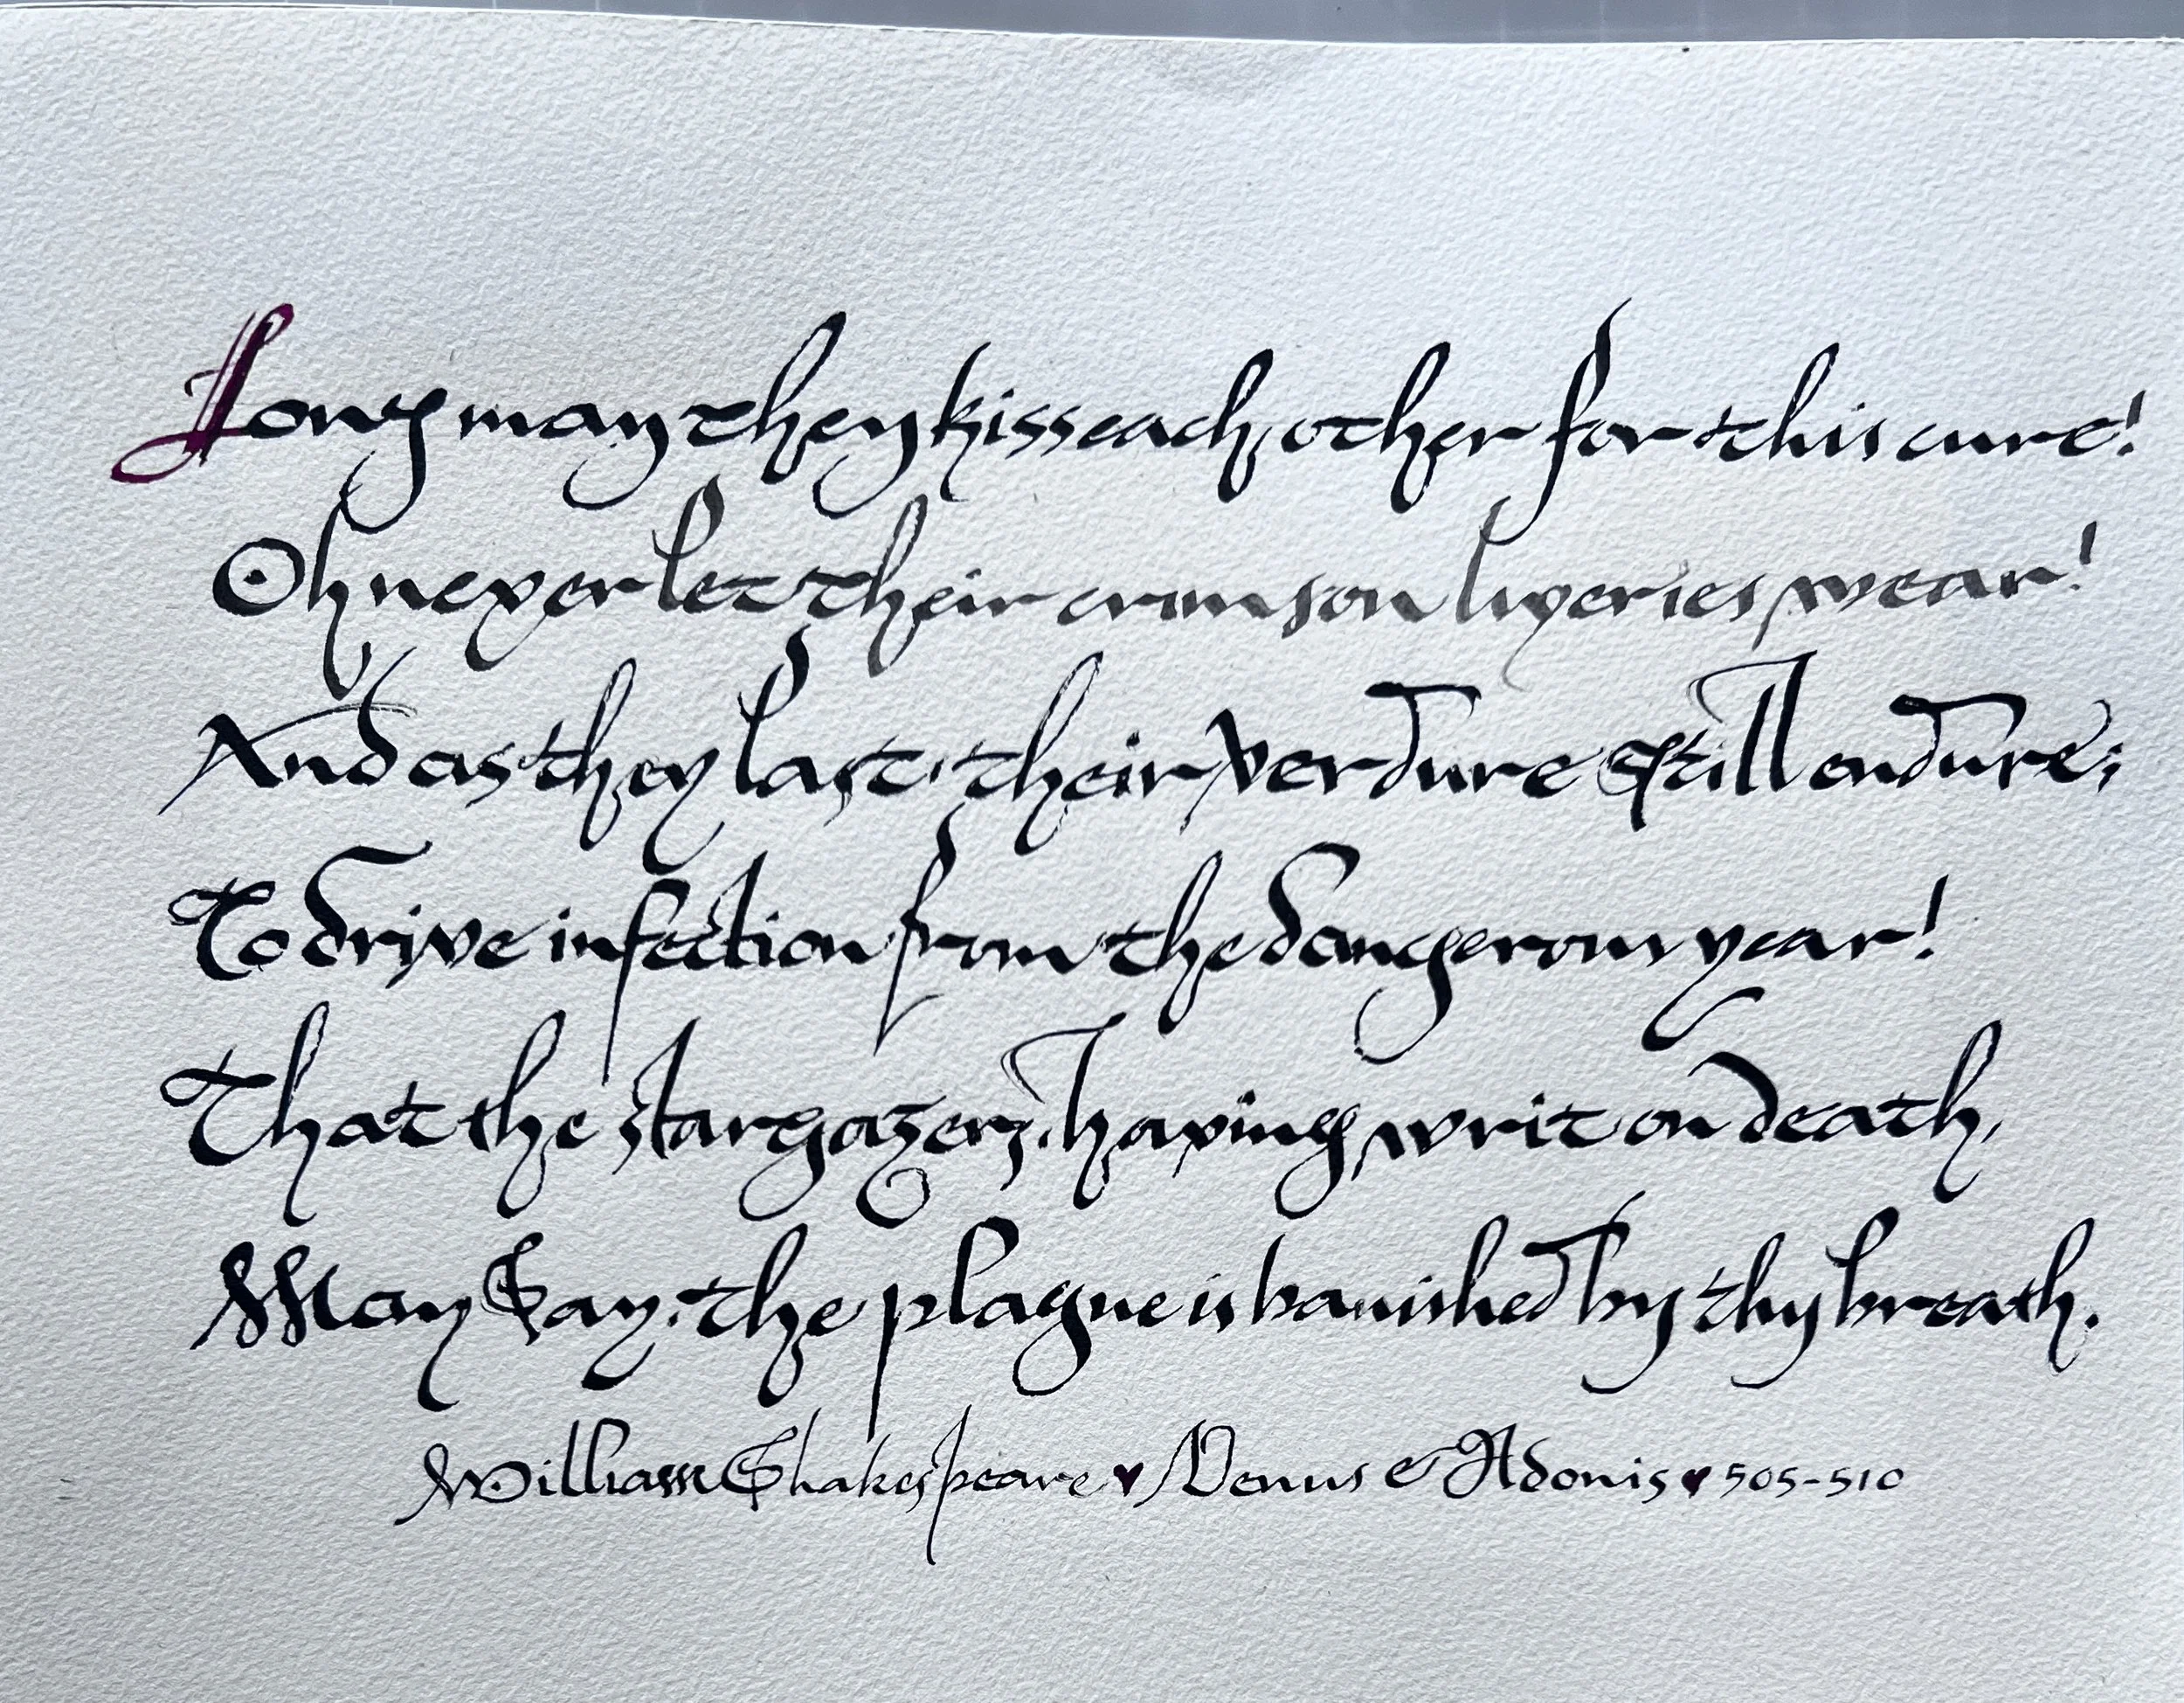 Long may they kiss each other for this cure!
Oh never let their crimson liveries wear!
And as they last, their verdure still endure;
To drive infection from the dangerous year!
That the stargazers, having writ on death,
May say, the plague is banished by thy breath.
William Shakespeare ♥ Venus & Adonis ♥ 505-510